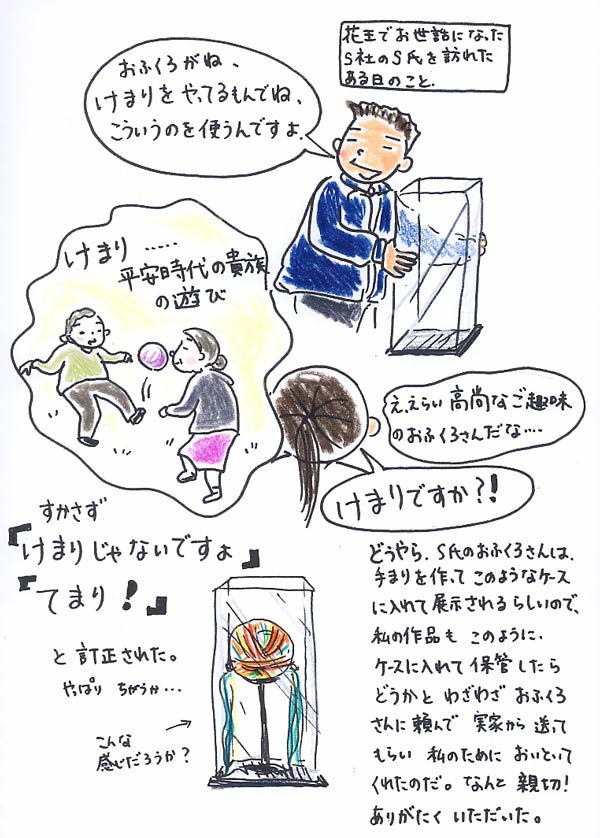 花王でお世話になった
S社のS氏を訪れた
ある日のこと.
おふくろがね、
けまりを やってるもんでね、
こういうのを使うんですよ.
けまり ‥‥‥
平安時代の貴族
の遊び
え、えらい 高尚なご趣味
のおふくろさんだな‥‥
けまりですか?!
すかさず
『けまりじゃないですよ』
『てまり!』
と 訂正された。
やっぱり ちがうか‥‥
こんな
感じだろうか?
どうやら、S氏のおふくろさんは、
手まりを作って このようなケース
に入れて展示されるらしいので、
私の作品も このように、
ケースに入れて 保管したら
どうかと わざわざ おふくろ
さんに頼んで 実家から 送って
もらい 私のために おいといて
くれたのだ。なんと 親切!
ありがたく いただいた。